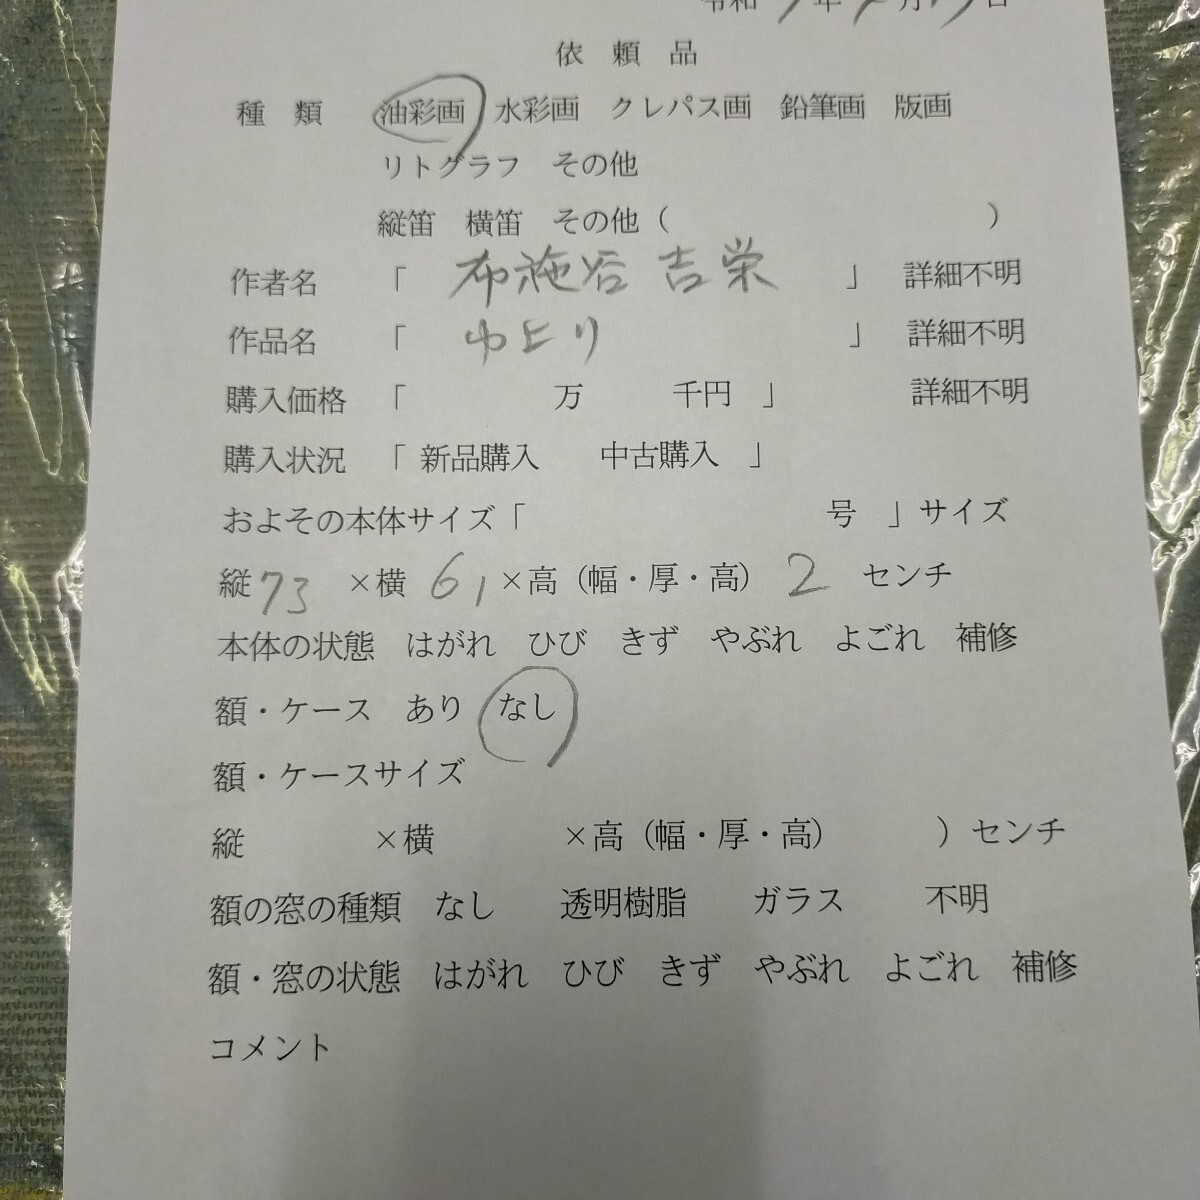 令和 年 月 日
依 頼 品
種 類 油彩画 水彩画 クレパス画 鉛筆画 版画
リトグラフ その他
縦笛 横笛 その他（ ）
作者名 「 布施谷 吉栄 」 詳細不明
作品名 「 ゆとり 」 詳細不明
購入価格 「 万 千円 」 詳細不明
購入状況 「 新品購入 中古購入 」
およその本体サイズ「 号 」サイズ
縦 73 ×横 61 ×高（幅・厚・高） 2 センチ
本体の状態 はがれ ひび きず やぶれ よごれ 補修
額・ケース あり なし
額・ケースサイズ
縦 ×横 ×高（幅・厚・高） ）センチ
額の窓の種類 なし 透明樹脂 ガラス 不明
額・窓の状態 はがれ ひび きず やぶれ よごれ 補修
コメント